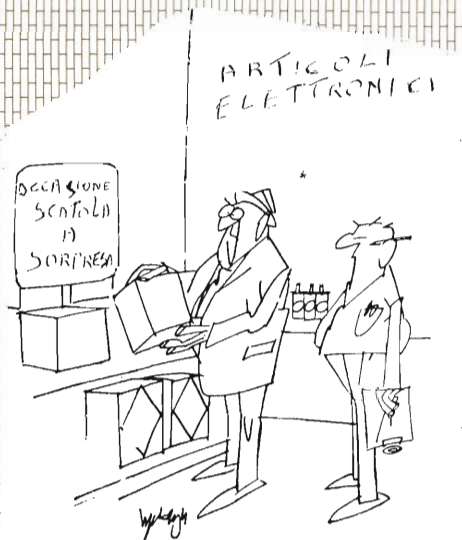 ARTICOLI
ELETTRONICI
OCCASIONE
SCATOLA
A
SORPRESA